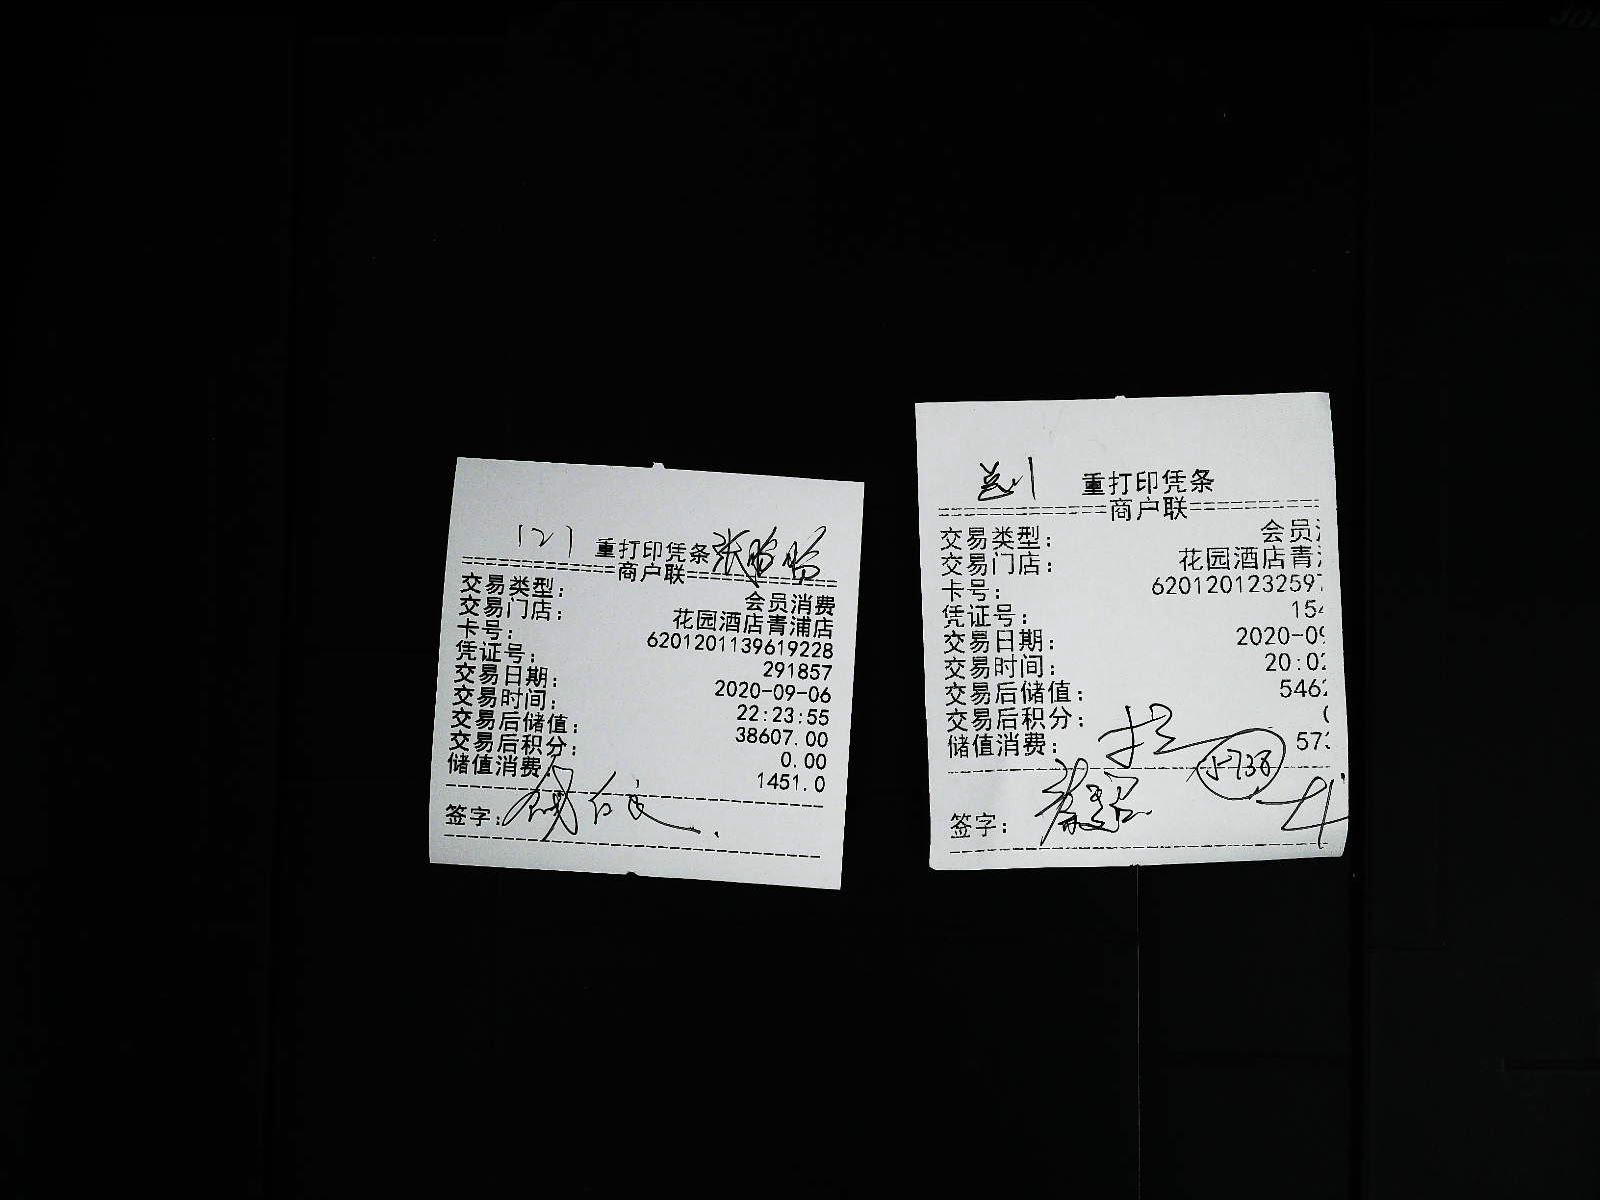 121 重打印凭条
================商户联================
交易类型: 会员消费
交易门店: 花园酒店青浦店
卡号: 6201201139619228
凭证号: 291857
交易日期: 2020-09-06
交易时间: 22:23:55
交易后储值: 38607.00
交易后积分: 0.00
储值消费: 1451.0
签字:
重打印凭条
================商户联============
交易类型: 会员
交易门店: 花园酒店青
卡号: 6201201232597
凭证号: 154
交易日期: 2020-09
交易时间: 20:02
交易后储值: 5462
交易后积分:
储值消费: 573
签字: